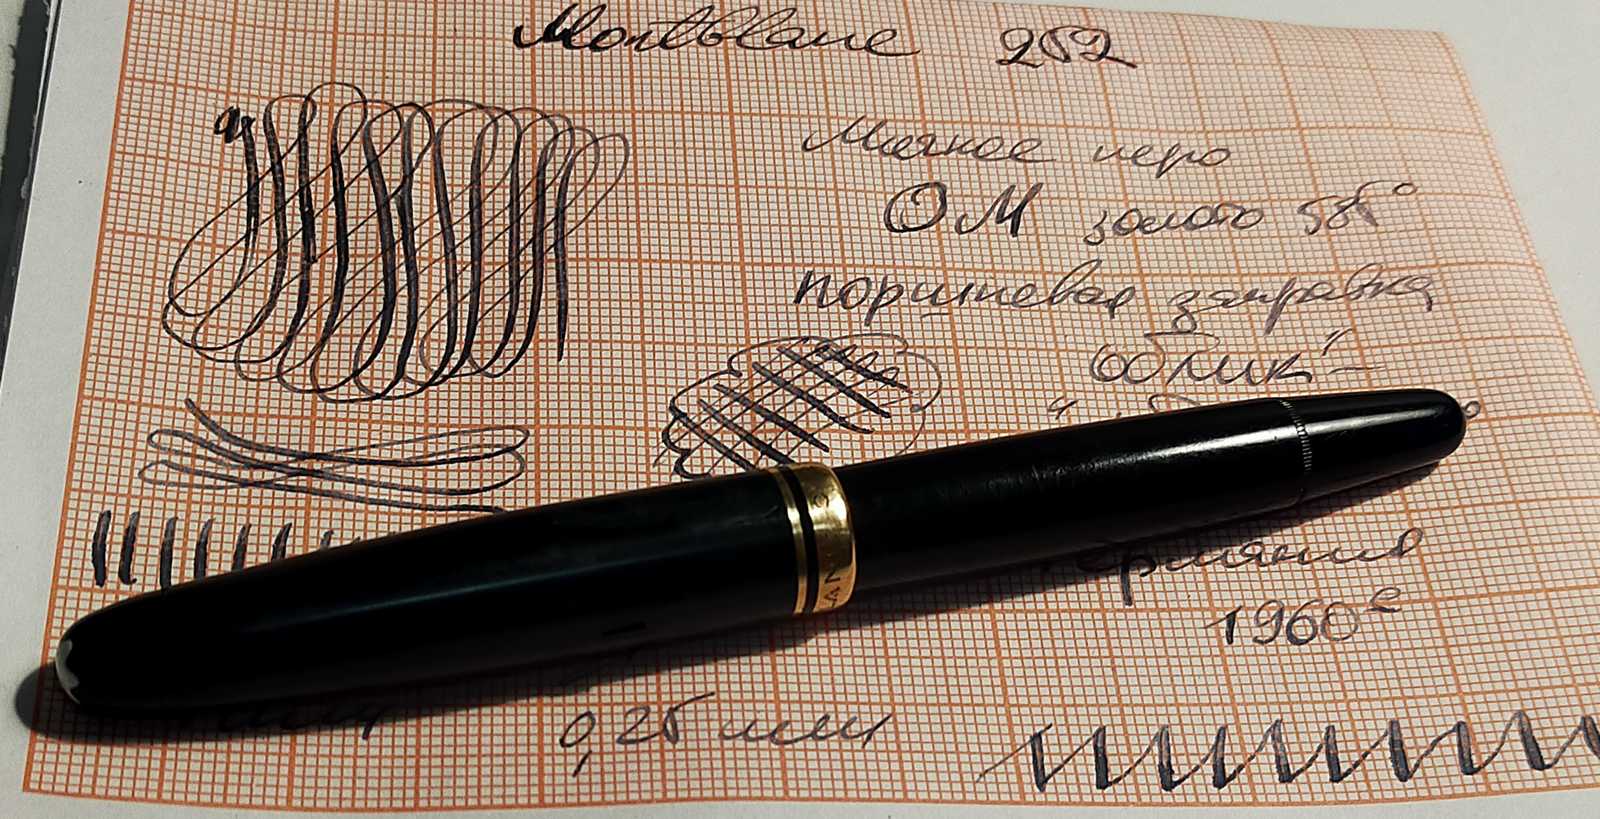 Montblanc 252
Мягкое перо
ОМ золото 585°
поршневая заправка
"облик"
Германия
1960е
мм
0,25 мм